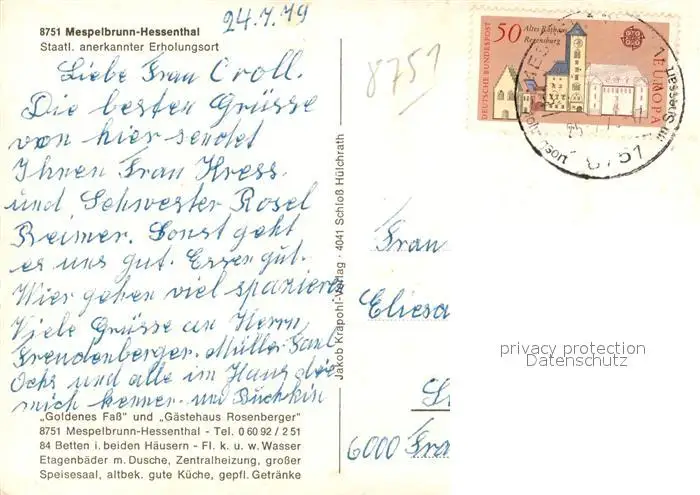 8751 Mespelbrunn-Hessenthal
Staatl. anerkannter Erholungsort
24.7.79
Liebe Frau Croll.
Die besten Grüsse
von hier sendet
Ihnen Frau Kress
und Schwester Rosel
Reimer. Sonst geht
es uns gut. Essen gut.
Wier gehen viel spazieren
Viele Grüsse an Herrn
Freudenberger. Müller Paul
Ochs und alle im Haus die
mich kennen. und Buchkin
„Goldenes Faß" und „Gästehaus Rosenberger"
8751 Mespelbrunn-Hessenthal - Tel. 0 60 92 / 2 51
84 Betten i. beiden Häusern - Fl. k. u. w. Wasser
Etagenbäder m. Dusche, Zentralheizung, großer
Speisesaal, altbek. gute Küche, gepfl. Getränke
Jakob Krapohl-Verlag · 4041 Schloß Hülchrath
8751
DEUTSCHE BUNDESPOST
50
Altes Rathaus
Regensburg
EUROPA
8751
Frau
Eliesa
6000 Fra
privacy protection
Datenschutz